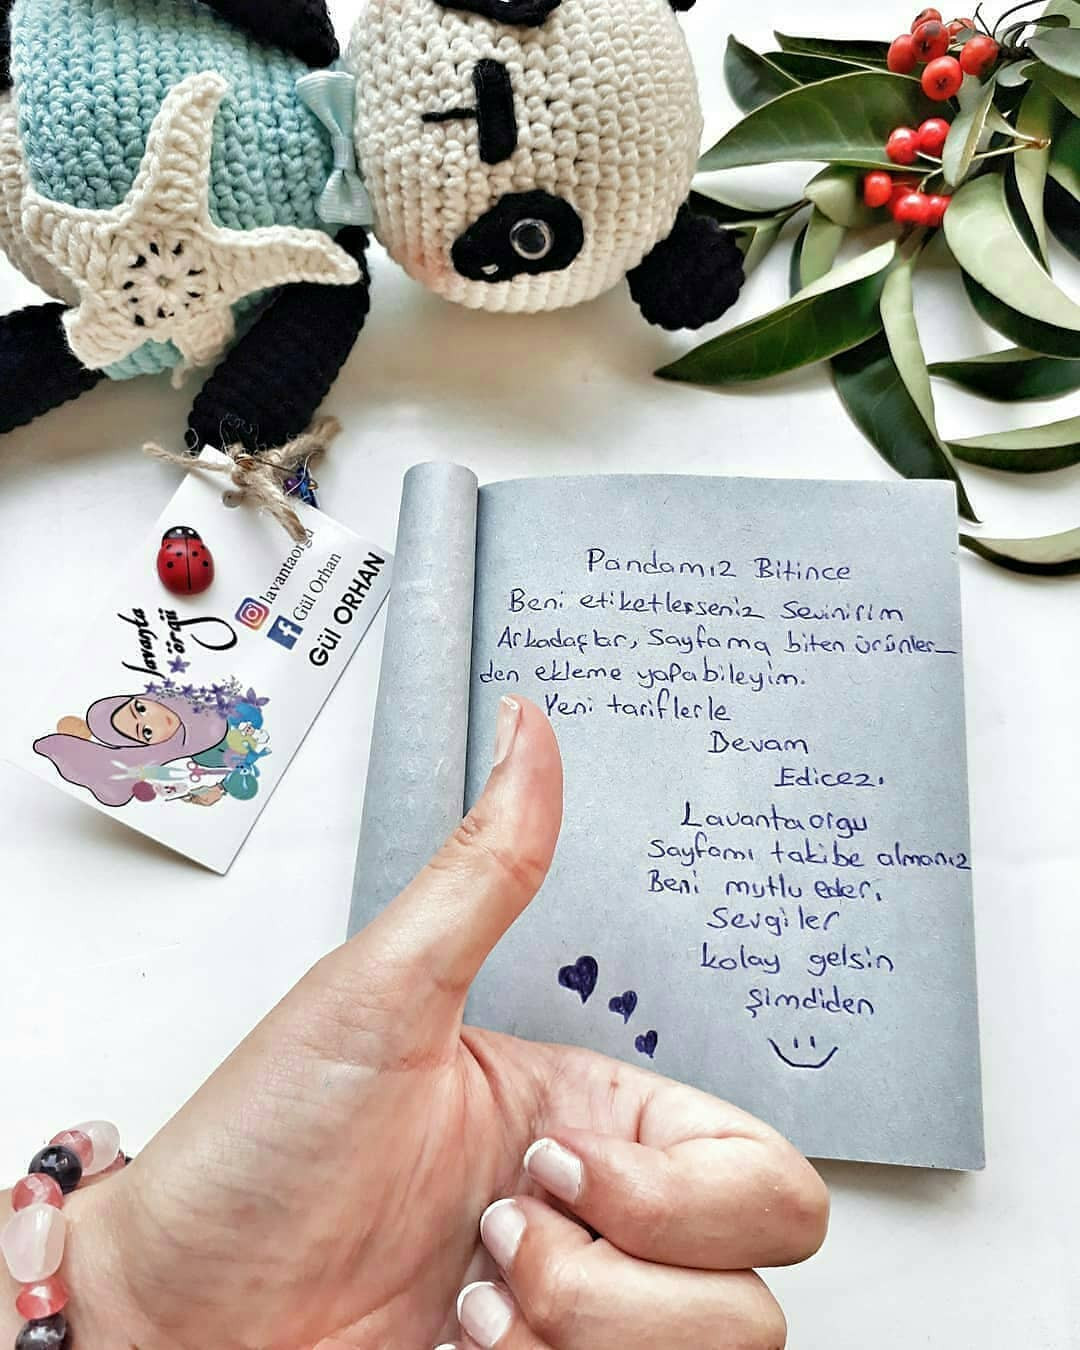 lavantaorgu
Gül Orhan
GÜL ORHAN
lavanta
örgü
Pandamız Bitince
Beni etiketlerseniz Sevinirim
Arkadaşlar, Sayfama biten ürünler_
den ekleme yapabileyim.
Yeni tariflerle
Devam
Edicez.
Lavantaorgu
Sayfamı takibe almanız
Beni mutlu eder.
Sevgiler
kolay gelsin
Şimdiden